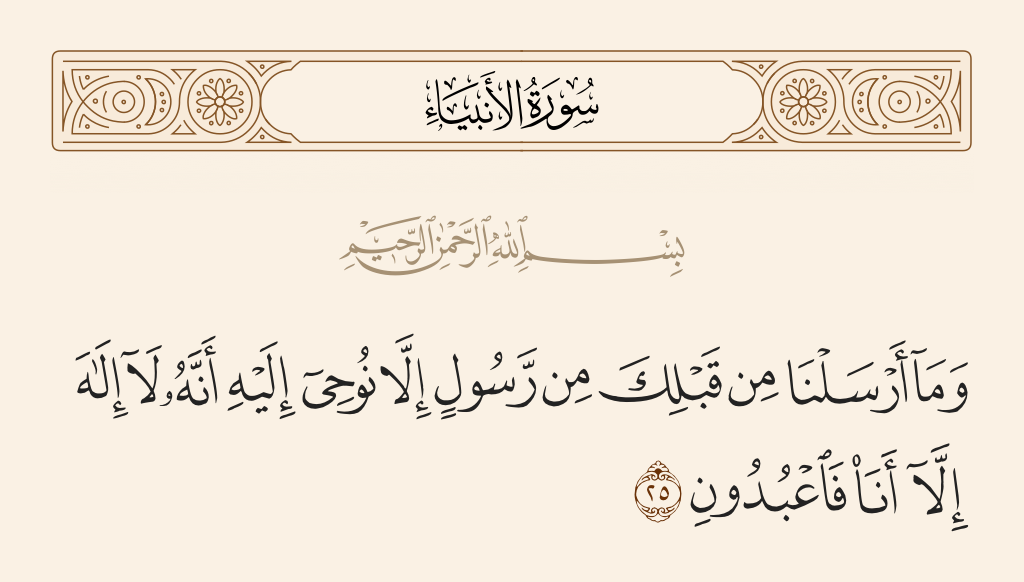 سُورَةُ الأَنبِيَاءِ
بِسْمِ ٱللَّهِ ٱلرَّحْمَٰنِ ٱلرَّحِيمِ
وَمَآ أَرْسَلْنَا مِن قَبْلِكَ مِن رَّسُولٍ إِلَّا نُوحِىٓ إِلَيْهِ أَنَّهُۥ لَآ إِلَٰهَ
إِلَّآ أَنَا۠ فَٱعْبُدُونِ ٢٥